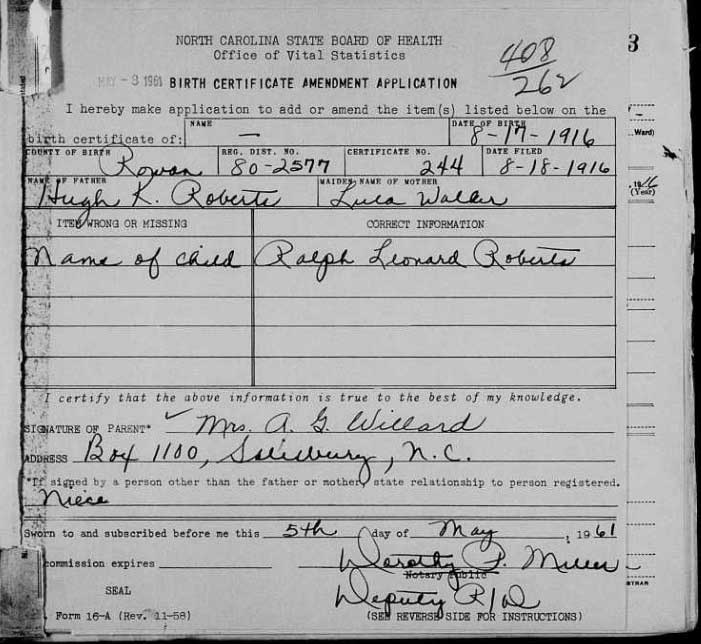 NORTH CAROLINA STATE BOARD OF HEALTH
Office of Vital Statistics
408
262
3
MAY -3 1961 BIRTH CERTIFICATE AMENDMENT APPLICATION
I hereby make application to add or amend the item(s) listed below on the
birth certificate of: NAME — DATE OF BIRTH 8-17-1916
Ward)
COUNTY OF BIRTH Rowan REG. DIST. NO. 80-2577 CERTIFICATE NO. 244 DATE FILED 8-18-1916
NAME OF FATHER Hugh K. Roberts MAIDEN NAME OF MOTHER Waller
1916
(Year)
ITEM WRONG OR MISSING CORRECT INFORMATION
Name of child Ralph Leonard Roberts
I certify that the above information is true to the best of my knowledge.
SIGNATURE OF PARENT* ✓ Mrs. A. G. Willard
ADDRESS Box 1100, Salisbury, N.C.
*If signed by a person other than the father or mother, state relationship to person registered.
Niece
Sworn to and subscribed before me this 5th day of May, 1961
commission expires Dorothy P. Miller
Notary Public
SEAL Deputy R/D
Form 16-A (Rev. 11-58) (SEE REVERSE SIDE FOR INSTRUCTIONS)